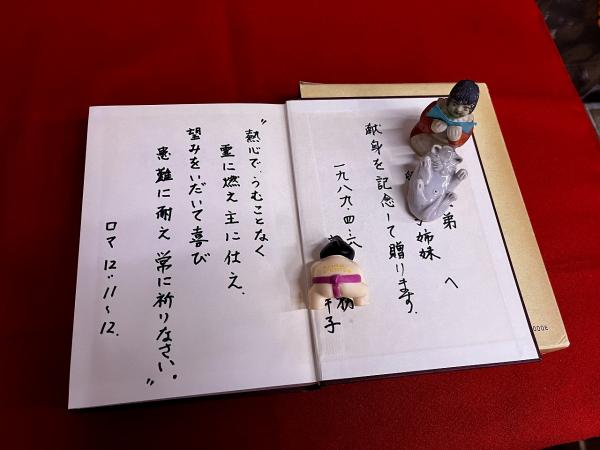 弟
子姉妹 へ
献身を記念して贈ります.
一九八九・四・六
子
〝熱心で、うむことなく
霊に燃え主に仕え、
望みをいだいて喜び
患難に耐え 常に祈りなさい。〟
ロマ 12:11〜12.